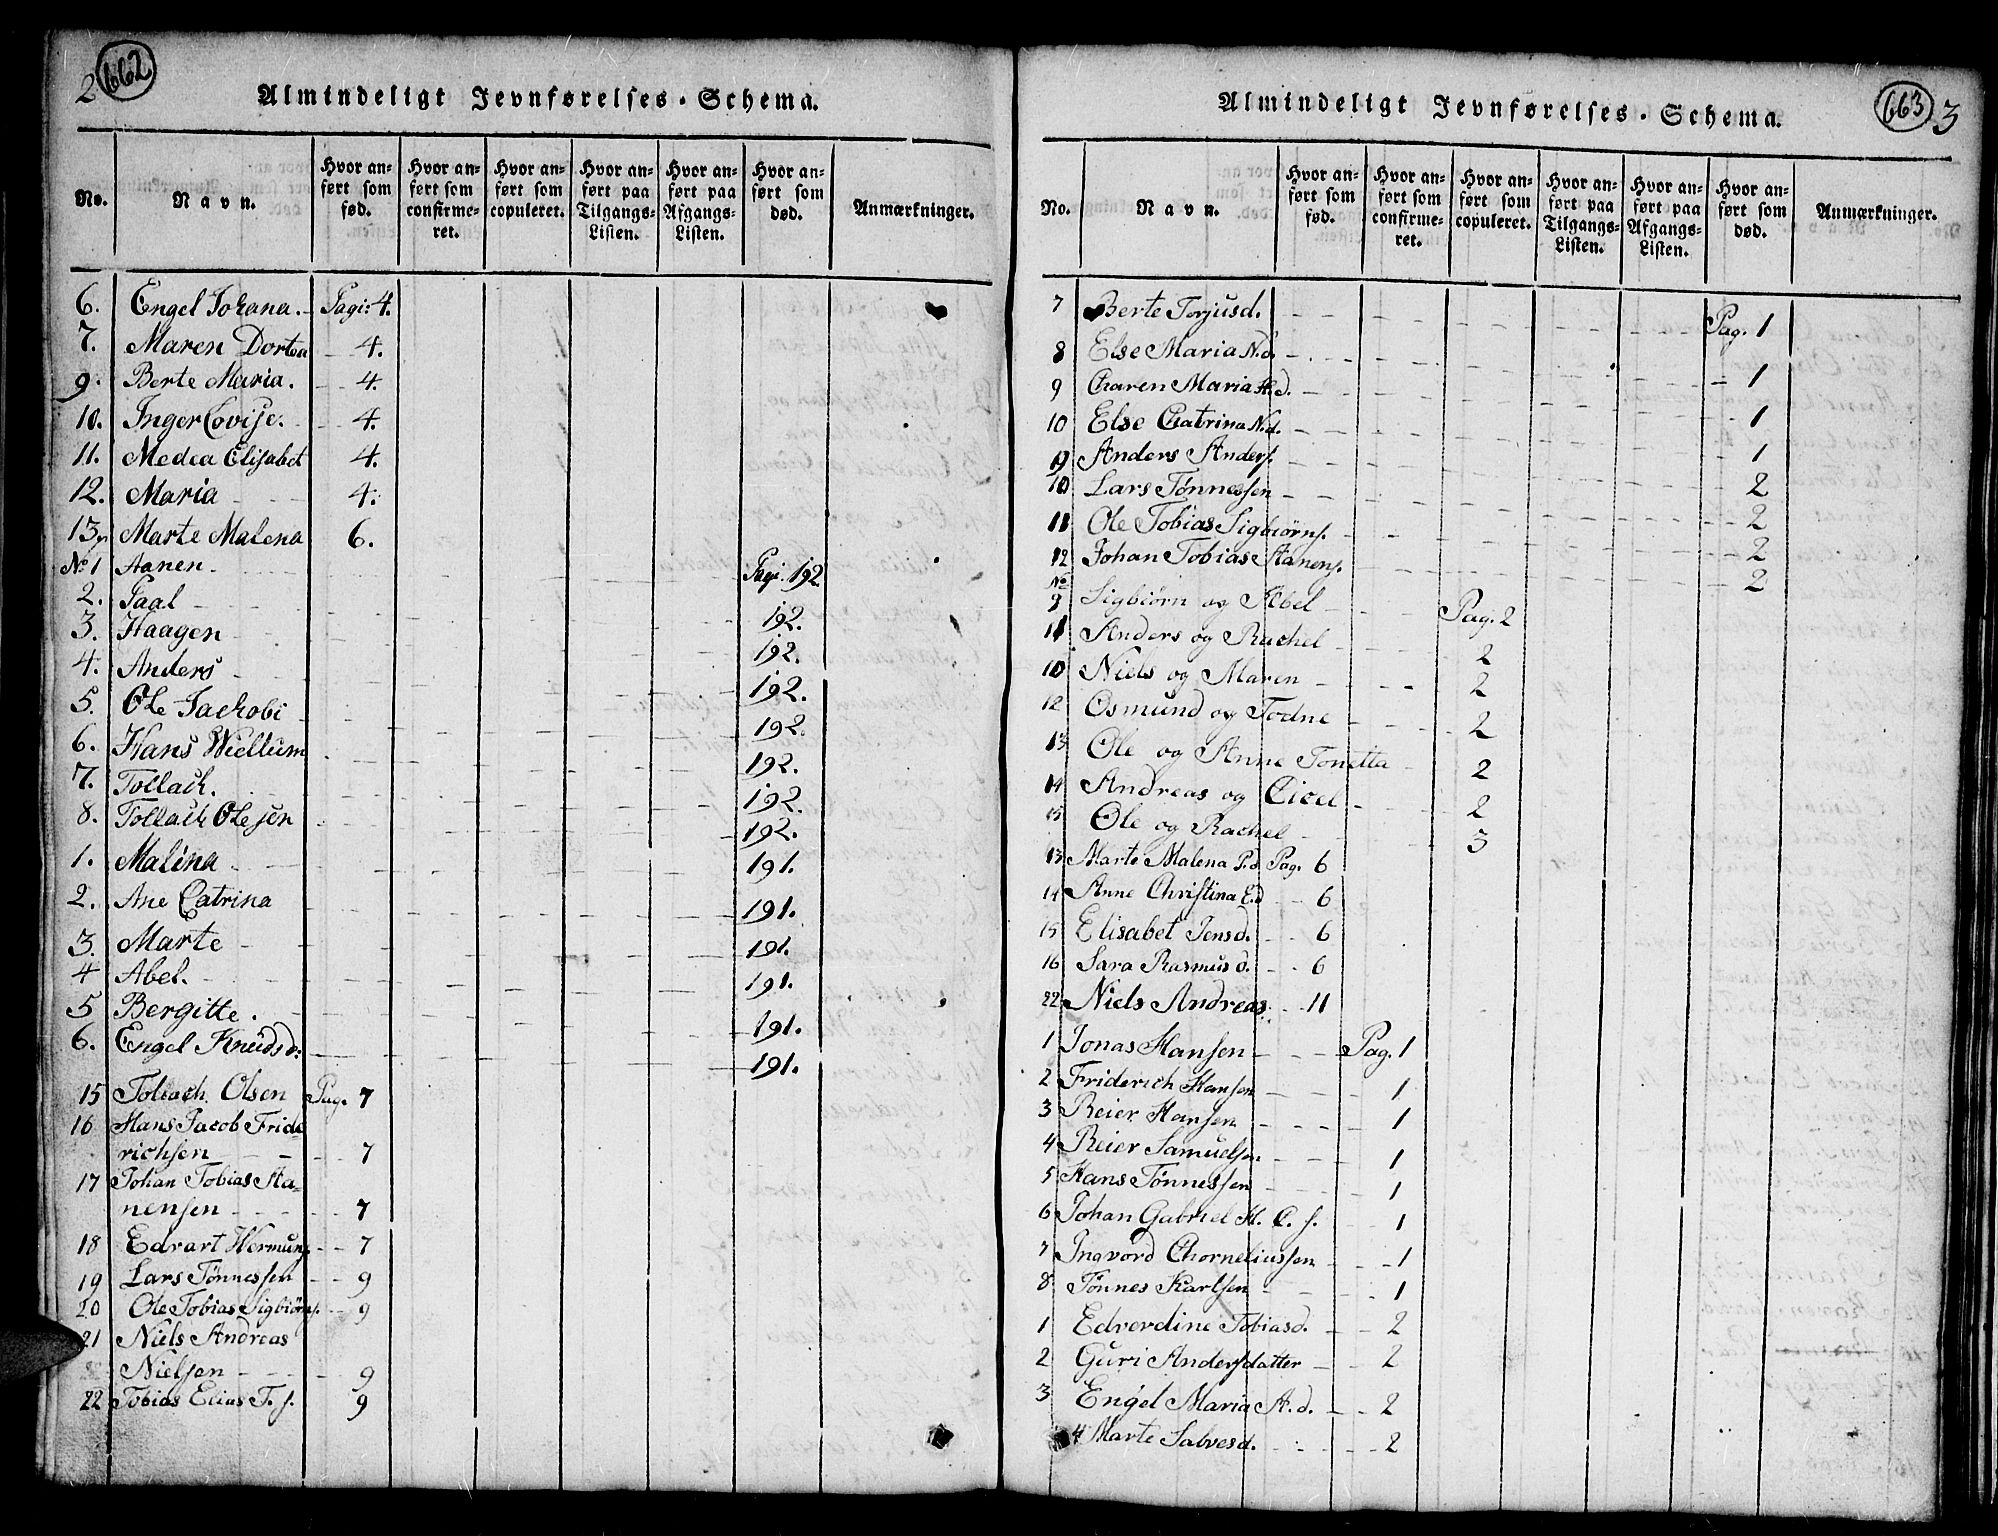 2 662
Almindeligt Jevnførelses-Schema.
No.
Navn.
Hvor anført som fød.
Hvor anført som confirmeret.
Hvor anført som copuleret.
Hvor anført paa Tilgangs-Listen.
Hvor anført paa Afgangs-Listen.
Hvor anført som død.
Anmærkninger.
6. Engel Johana. Pagi: 4.
7. Maren Dortea 4.
9. Berte Maria. 4.
10. Inger Lovise. 4.
11. Medea Elisabet 4.
12. Maria 4.
13. Marte Malena 6.
No 1 Aanen Pagi. 192
2. Paal 192.
3. Haagen 192.
4. Anders 192.
5. Ole Jackobi 192.
6. Hans Wiellum 192.
7. Tollack. 192.
8. Tollack Olesen 192.
1. Malena 191.
2. Ane Catrina 191.
3. Marte 191.
4 Abel. 191.
5 Bergitte. 191.
6. Engel Knudsd: 191.
15 Tollach Olsen Pag. 7
16 Hans Jacob Fride
richsen 7
17 Johan Tobias Aa-
nensen 7
18 Edvart Hermuns. 7
19 Lars Tønnessen 9
20 Ole Tobias Sigbiørns. 9
21 Niels Andreas
Nielsen 9
22 Tobias Elias T. s. 9
663 3
Almindeligt Jevnførelses-Schema.
No.
Navn.
Hvor anført som fød.
Hvor anført som confirmeret.
Hvor anført som copuleret.
Hvor anført paa Tilgangs-Listen.
Hvor anført paa Afgangs-Listen.
Hvor anført som død.
Anmærkninger.
7 Berte Torjusd. Pag. 1
8 Else Maria N.d. 1
9 Charen Maria H.d. 1
10 Else Chatrina N.d. 1
9 Anders Anders. 2
10 Lars Tønnessen 2
11 Ole Tobias Sigbiørns. 2
12 Johan Tobias Aanens. 2
No
9 Sigbiørn og Abel Pag. 2
11 Anders og Rachel 2
10 Niels og Maren 2
12 Osmund og Todne 2
13 Ole og Anne Tonetta 2
14 Andreas og Cicel 2
15 Ole og Rachel 3
13 Marte Malena P.d. Pag. 6
14 Anne Christina E.d 6
15 Elisabet Jensd. 6
16 Sara Rasmusd. 6
22 Niels Andreas 11
1 Jonas Hansen Pag. 1
2 Friderich Hansen 1
3 Reier Hansen 1
4 Reier Samuelsen 1
5 Hans Tønnessen 1
6 Johan Gabriel H. C. s. 1
7 Ingvord Chorneliussen 1
8 Tønnes Karlsen 1
1 Edverdine Tobiasd. 2
2 Guri Andersdatter 2
3 Engel Maria A.d. 2
4 Marte Salvesd. 2